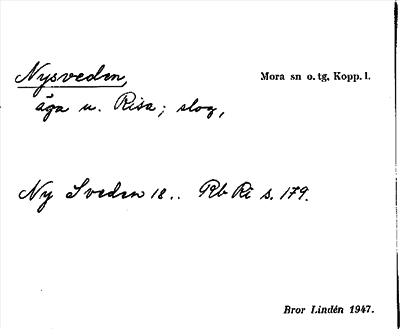 Nysveden,
Mora sn o. tg, Kopp. l.
äga u. Risa; slog,
Ny Sveden 18.. Rb Ri s. 179.
Bror Lindén 1947.